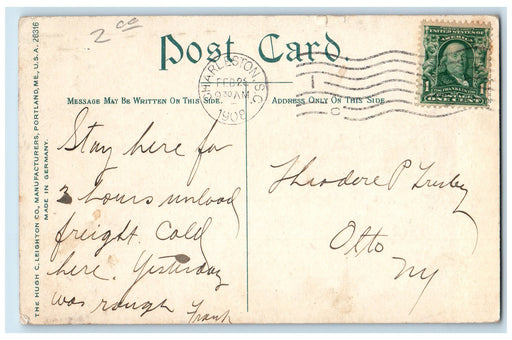 2 00
Post Card.
CHARLESTON, S.C.
FEB 25
9 30 AM
1908
UNITED STATES OF AMERICA
1 1
ONE CENT
MESSAGE MAY BE WRITTEN ON THIS SIDE.
ADDRESS ONLY ON THIS SIDE
Stay here for
3 hours unload
freight. Cold
here. Yesterday
was rough Frank
Theodore P
Otto
NY
THE HUGH C. LEIGHTON CO., MANUFACTURERS, PORTLAND, ME., U.S.A. 26316
MADE IN GERMANY.